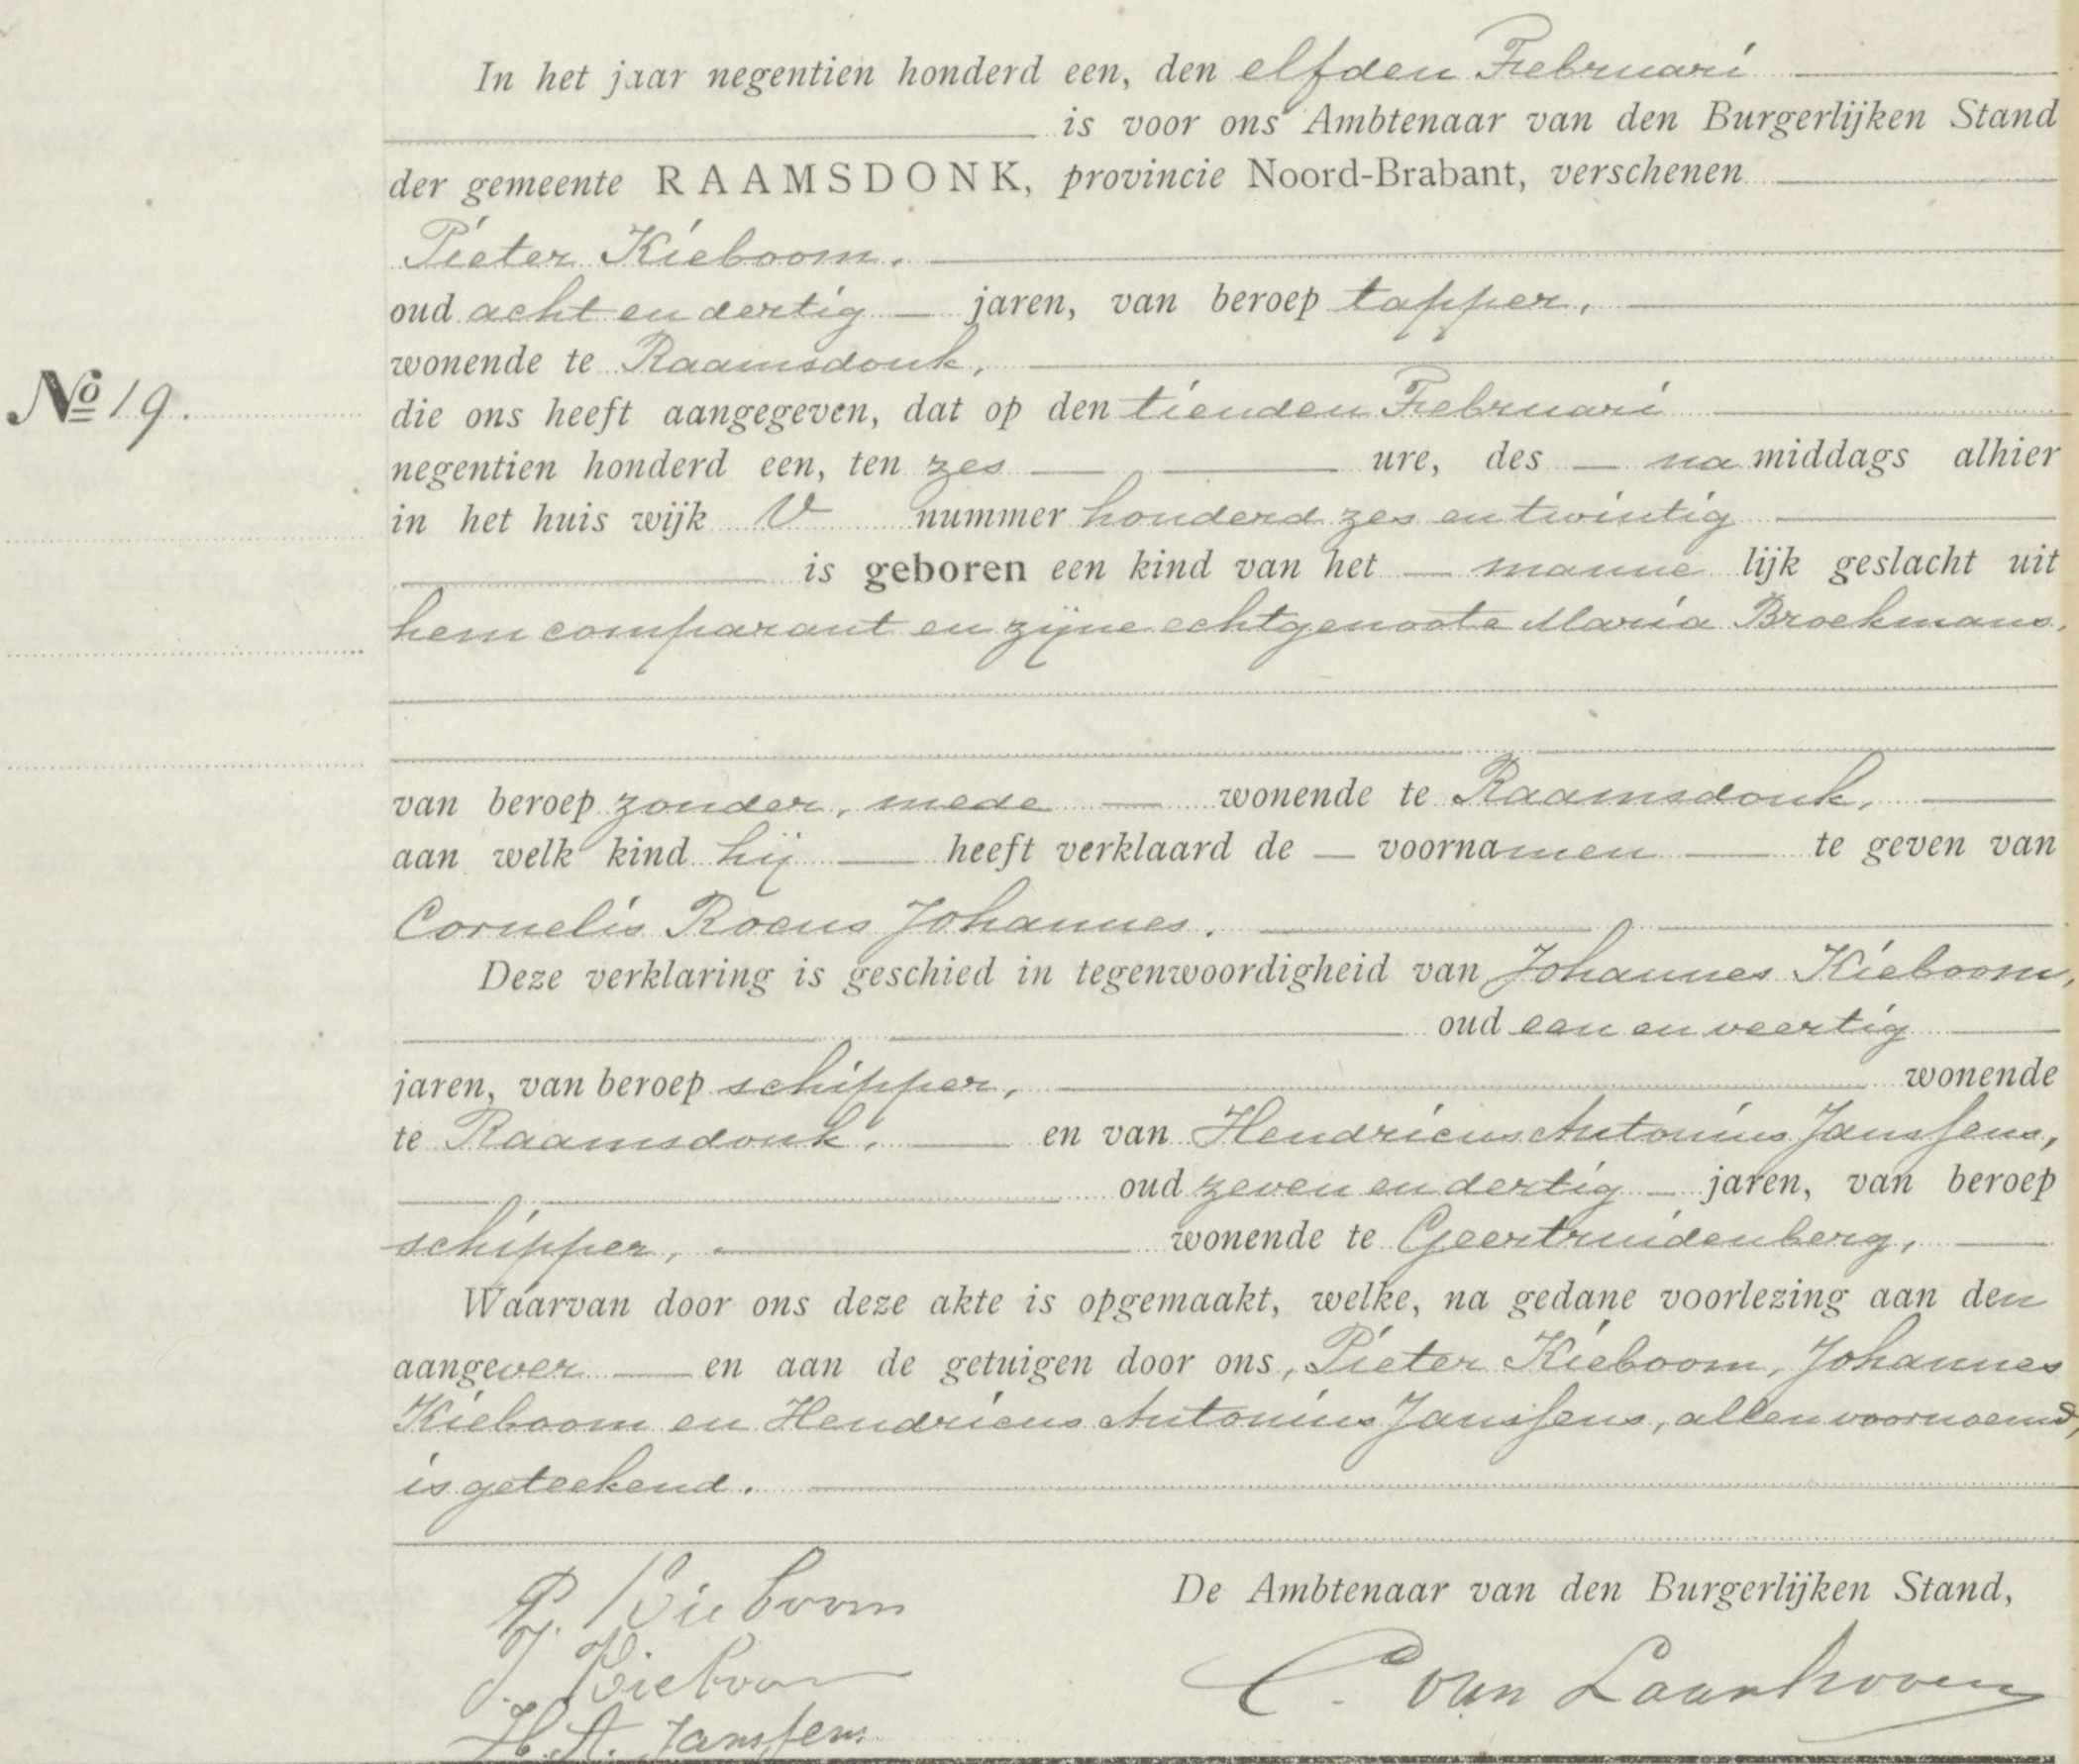 In het jaar negentien honderd een, den elfden Februari
is voor ons Ambtenaar van den Burgerlijken Stand
der gemeente RAAMSDONK, provincie Noord-Brabant, verschenen
Pieter Kieboom.
oud acht en dertig jaren, van beroep tapper,
wonende te Raamsdonk,
No 19.
die ons heeft aangegeven, dat op den tienden Februari
negentien honderd een, ten zes ure, des na middags alhier
in het huis wijk V nummer honderd zes en twintig
is geboren een kind van het manne lijk geslacht uit
hem comparant en zijne echtgenoote Maria Broekmans,
van beroep zonder, mede wonende te Raamsdonk,
aan welk kind hij heeft verklaard de voornamen te geven van
Cornelis Rocus Johannes.
Deze verklaring is geschied in tegenwoordigheid van Johannes Kieboom,
oud een en veertig
jaren, van beroep schipper, wonende
te Raamsdonk, en van Hendricus Antonius Janssens,
oud zeven en dertig jaren, van beroep
schipper, wonende te Geertruidenberg,
Waarvan door ons deze akte is opgemaakt, welke, na gedane voorlezing aan den
aangever en aan de getuigen door ons, Pieter Kieboom, Johannes
Kieboom en Hendricus Antonius Janssens, allen voornoemd,
is geteekend.
De Ambtenaar van den Burgerlijken Stand,
P. Kieboom
J. Kieboom
C. van Laarhoven
H. A. Janssens